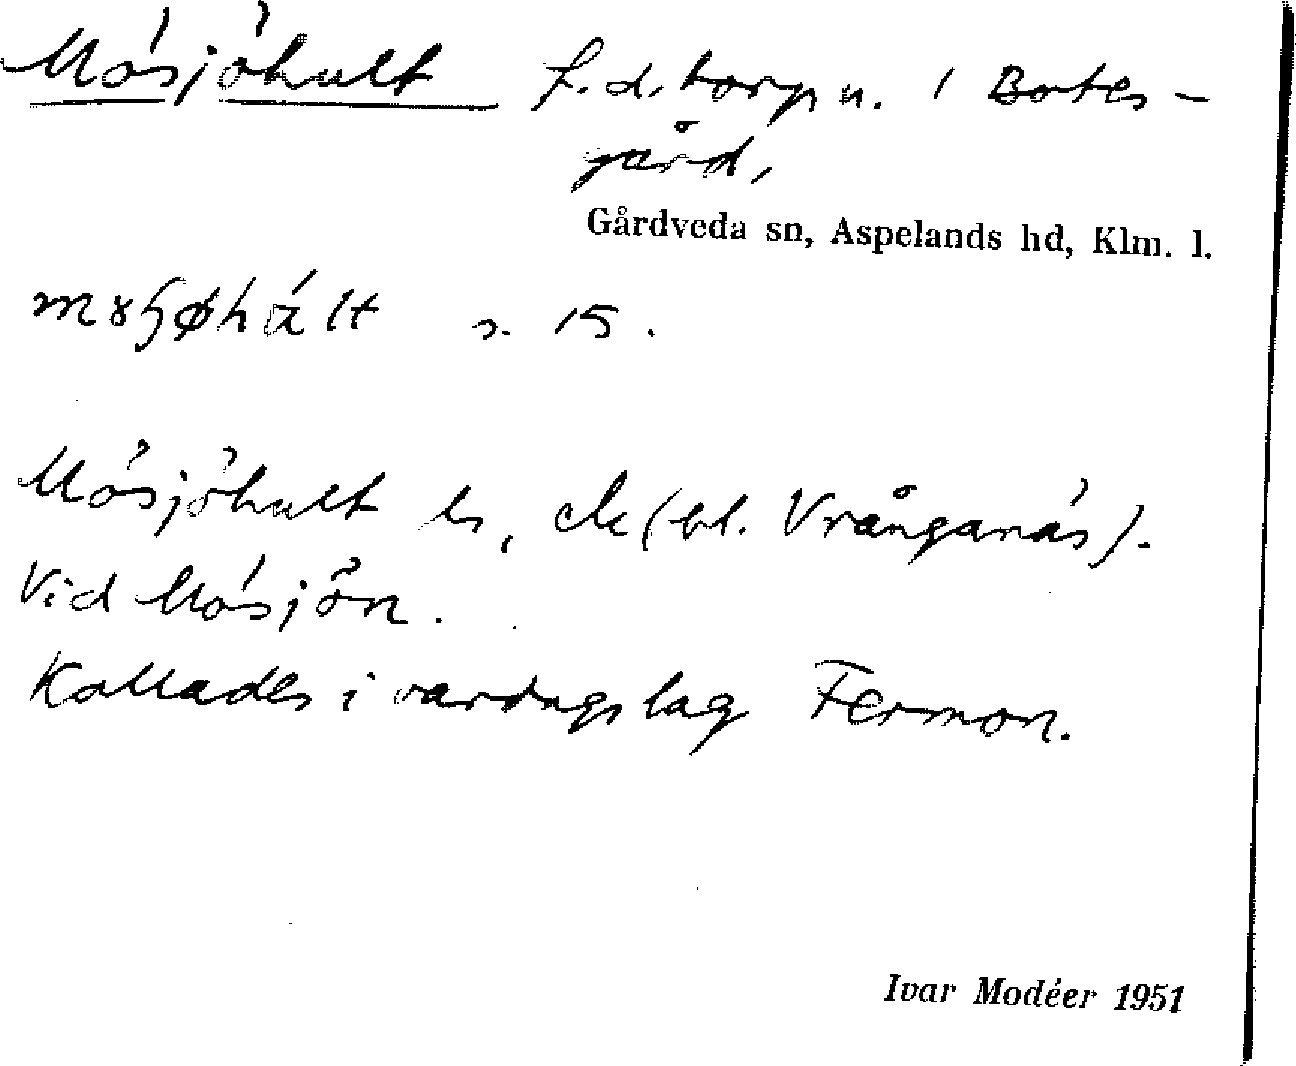 Mösjöhult f.d. torp u. Botes-
gård,
Gårdveda sn, Aspelands hd, Klm. l.
s. 15.
Mösjöhult ls, ck (bl. Vrånganäs).
Vid Mösjön.
Kallades i vardagslag Fermon.
Ivar Modéer 1951